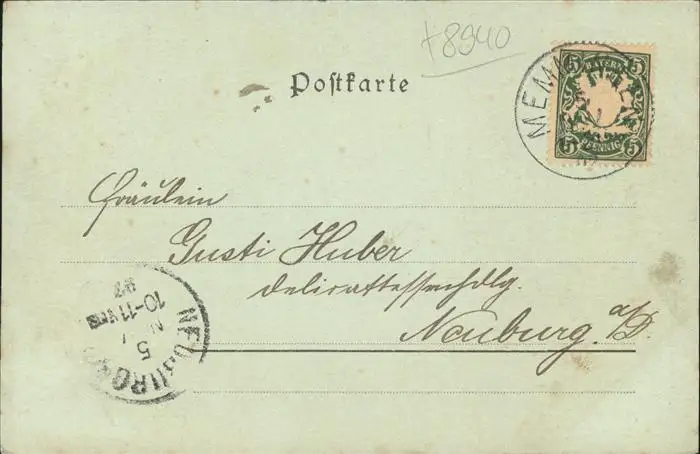 +8940
Postkarte
MEMM
5 BAYERN 5
5 PFENNIG 5
Fräulein
Gusti Huber
Delicattessenhdlg.
Neuburg a/D.
NEUBURG
5
10-11
97